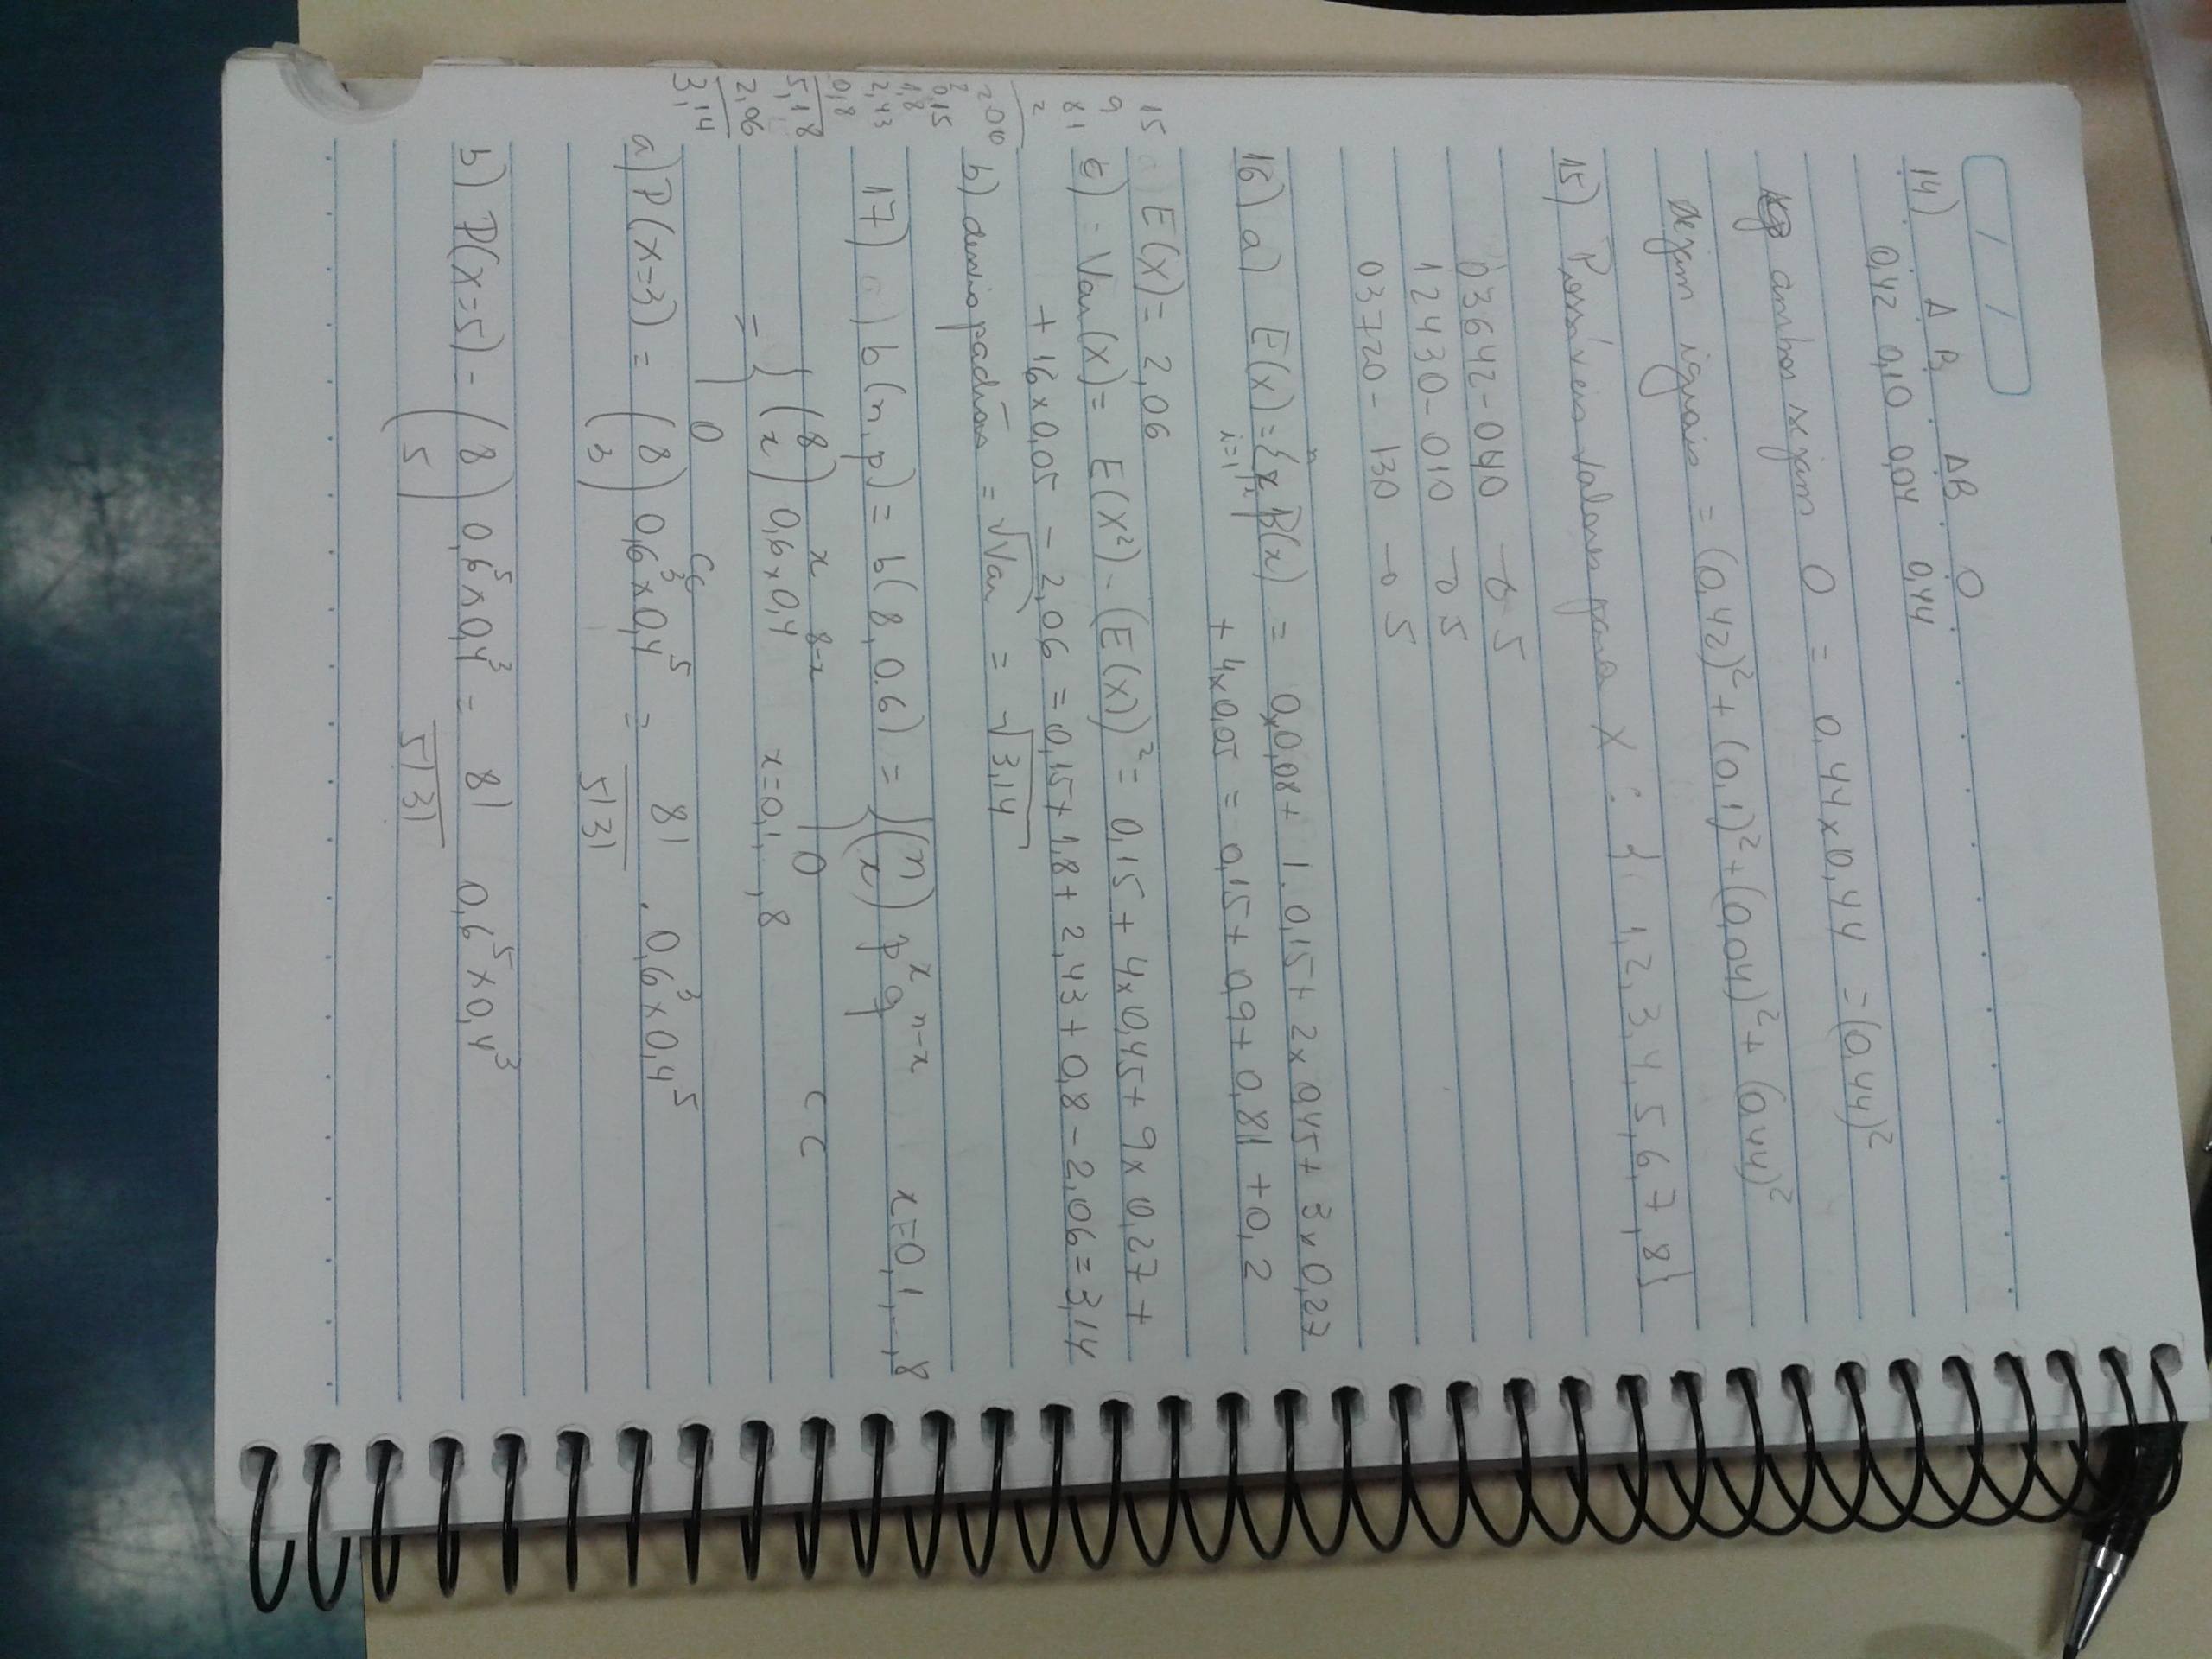 / /
14) A B AB O
0,42 0,10 0,04 0,44
ambos sejam O = 0,44 x 0,44 = (0,44)²
sejam iguais = (0,42)² + (0,1)² + (0,04)² + (0,44)²
15) Possíveis valores para X : { 1, 2, 3, 4, 5, 6, 7, 8}
03642-040 → 5
12430-010 → 5
03720-130 → 5
16) a) E(x) = Σ x P(x) = 0x0,08 + 1.0,15 + 2x0,45 + 3x0,27
i=1
n
+ 4x0,05 = 0,15 + 0,9 + 0,81 + 0,2
E(x) = 2,06
c) = Var(x) = E(x²) - (E(x))² = 0,15 + 4x0,45 + 9x0,27 +
+ 16x0,05 - 2,06 = 0,15 + 1,8 + 2,43 + 0,8 - 2,06 = 3,14
b) desvio padrão = √Var = √3,14
15
9
81
2
206
0,15
1,8
2,43
0,8
5,18
2,06
3,14
17) b(n,p) = b(8,0.6) = { (n x) p^x q^n-x x=0,1,..,8
0 cc
= { (8 x) 0,6^x x 0,4^8-x x=0,1,..,8
0 cc
a) P(x=3) = (8 3) 0,6³ x 0,4⁵ = 8! / 5!3! . 0,6³ x 0,4⁵
b) P(x=5) - (8 5) 0,6⁵ x 0,4³ = 8! / 5!3! 0,6⁵ x 0,4³